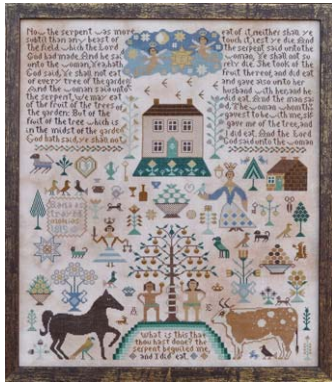 Now the serpent was more
subtil than any beast of
the field which the Lord
God had made. And he said
unto the woman, Yea hath
God said, Ye shall not eat
of every tree of the garden
And the woman said unto
the serpent, we may eat
of the fruit of the trees of
the garden: But of the
fruit of the tree which is
in the midst of the garden
God hath said, ye shall not
eat of it, neither shall ye
touch it, lest ye die. And
the serpent said unto the
woman, Ye shall not su
rely die. She took of the
fruit thereof, and did eat
and gave also unto her
husband with her; and he
did eat. And the man said
The woman whom th
gavest to be with me, sh
gave me of the tree, and
I did eat. And the Lord
God said unto the woman
What is this that
thou hast done? the
serpent beguiled me,
and I did eat.